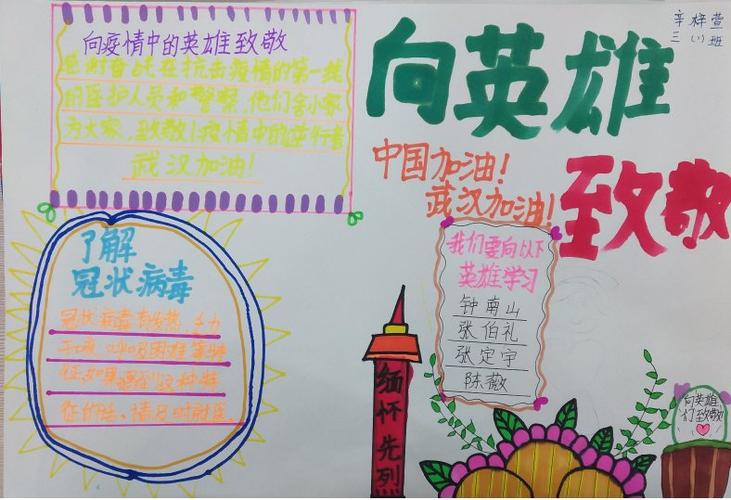 向疫情中的英雄致敬
感谢奋战在抗击疫情的第一线
的医护人员和警察，他们舍小家
为大家，致敬！疫情中的逆行者
武汉加油！
向英雄
致敬
辛梓萱
三（1）班
中国加油！
武汉加油！
了解
冠状病毒
冠状病毒有发热、乏力
干咳、呼吸困难等特
征，如果遇到这种特
征的话，请及时就医。
我们要向以下
英雄学习
钟南山
张伯礼
张定宇
陈薇
缅怀先烈
向英雄
们致敬